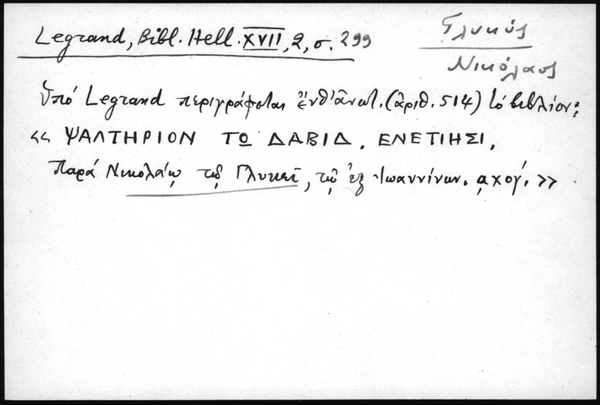 Legrand, Bibl. Hell. XVII, 2, σ. 299
Γλυκύς
Νικόλαος
Ὑπό Legrand περιγράφεται ἔνθ' ἀνωτ. (ἀριθ. 514) τό βιβλίον:
« ΨΑΛΤΗΡΙΟΝ ΤΩ ΔΑΒΙΔ. ΕΝΕΤΙΗΣΙ,
Παρά Νικολάῳ τῷ Γλυκεῖ, τῷ ἐξ Ἰωαννίνων. ͵αχογ́. »